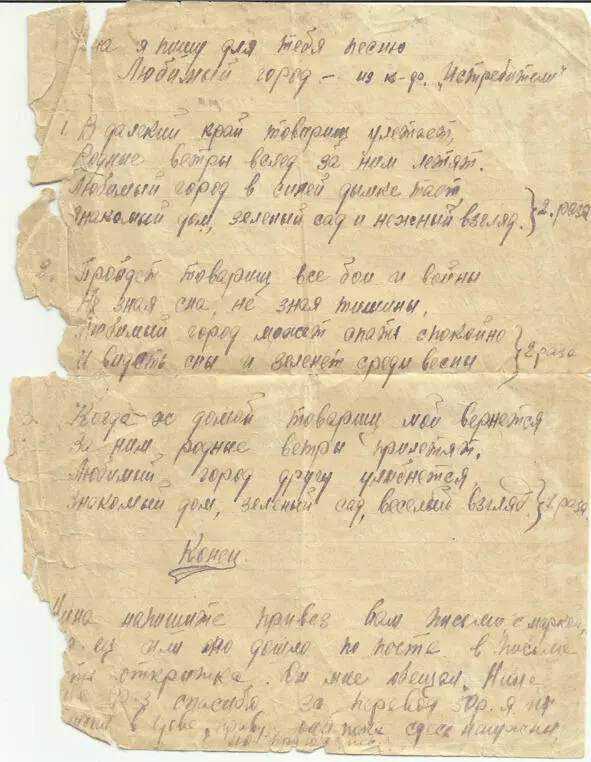 я пишу для тебя песню
Любимый город - из к-др. "Истребители"
1. В далекий край товарищ улетает,
Родные ветры вслед за ним летят.
Любимый город в синей дымке тает
знакомый дом, зеленый сад и нежный взгляд. } 2. раза
2. Пройдет товарищ все бои и войны
Не зная сна, не зная тишины,
Любимый город может спать спокойно
И видеть сны и зеленет среди весны } 2 раза
Когда ж домой товарищ мой вернется
За ним родные ветры прилетят,
Любимый город другу улыбнется
Знакомый дом, зеленый сад, веселый взгляд } 2 раза.
Конец
Нина напишите привез вам письмо с маркой,
или оно дошло по поста в письме
открытка. Он мне обещал. Нина
спасибо за перевод 30р. я их